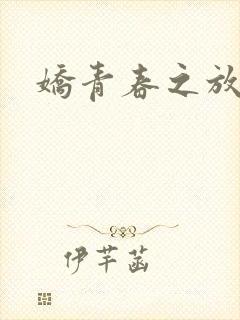 嬌青春之放
伊芊菡